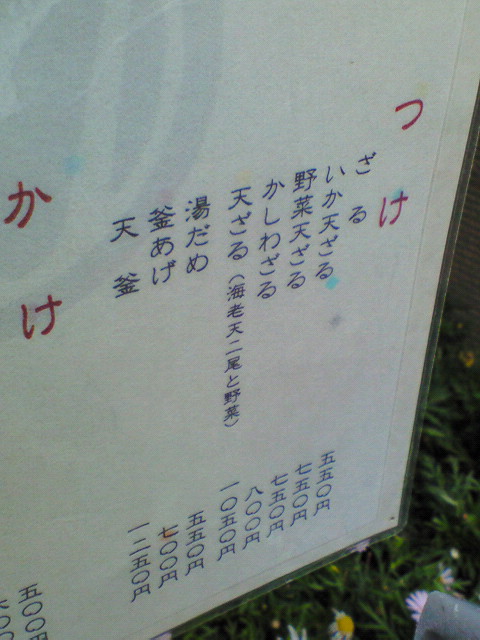 つけ
ざる 五五〇円
いか天ざる 七五〇円
野菜天ざる 七五〇円
かしわざる 八〇〇円
天ざる(海老天二尾と野菜) 一〇五〇円
湯だめ 五五〇円
釜あげ 七〇〇円
天釜 一二五〇円
かけ
五〇〇円